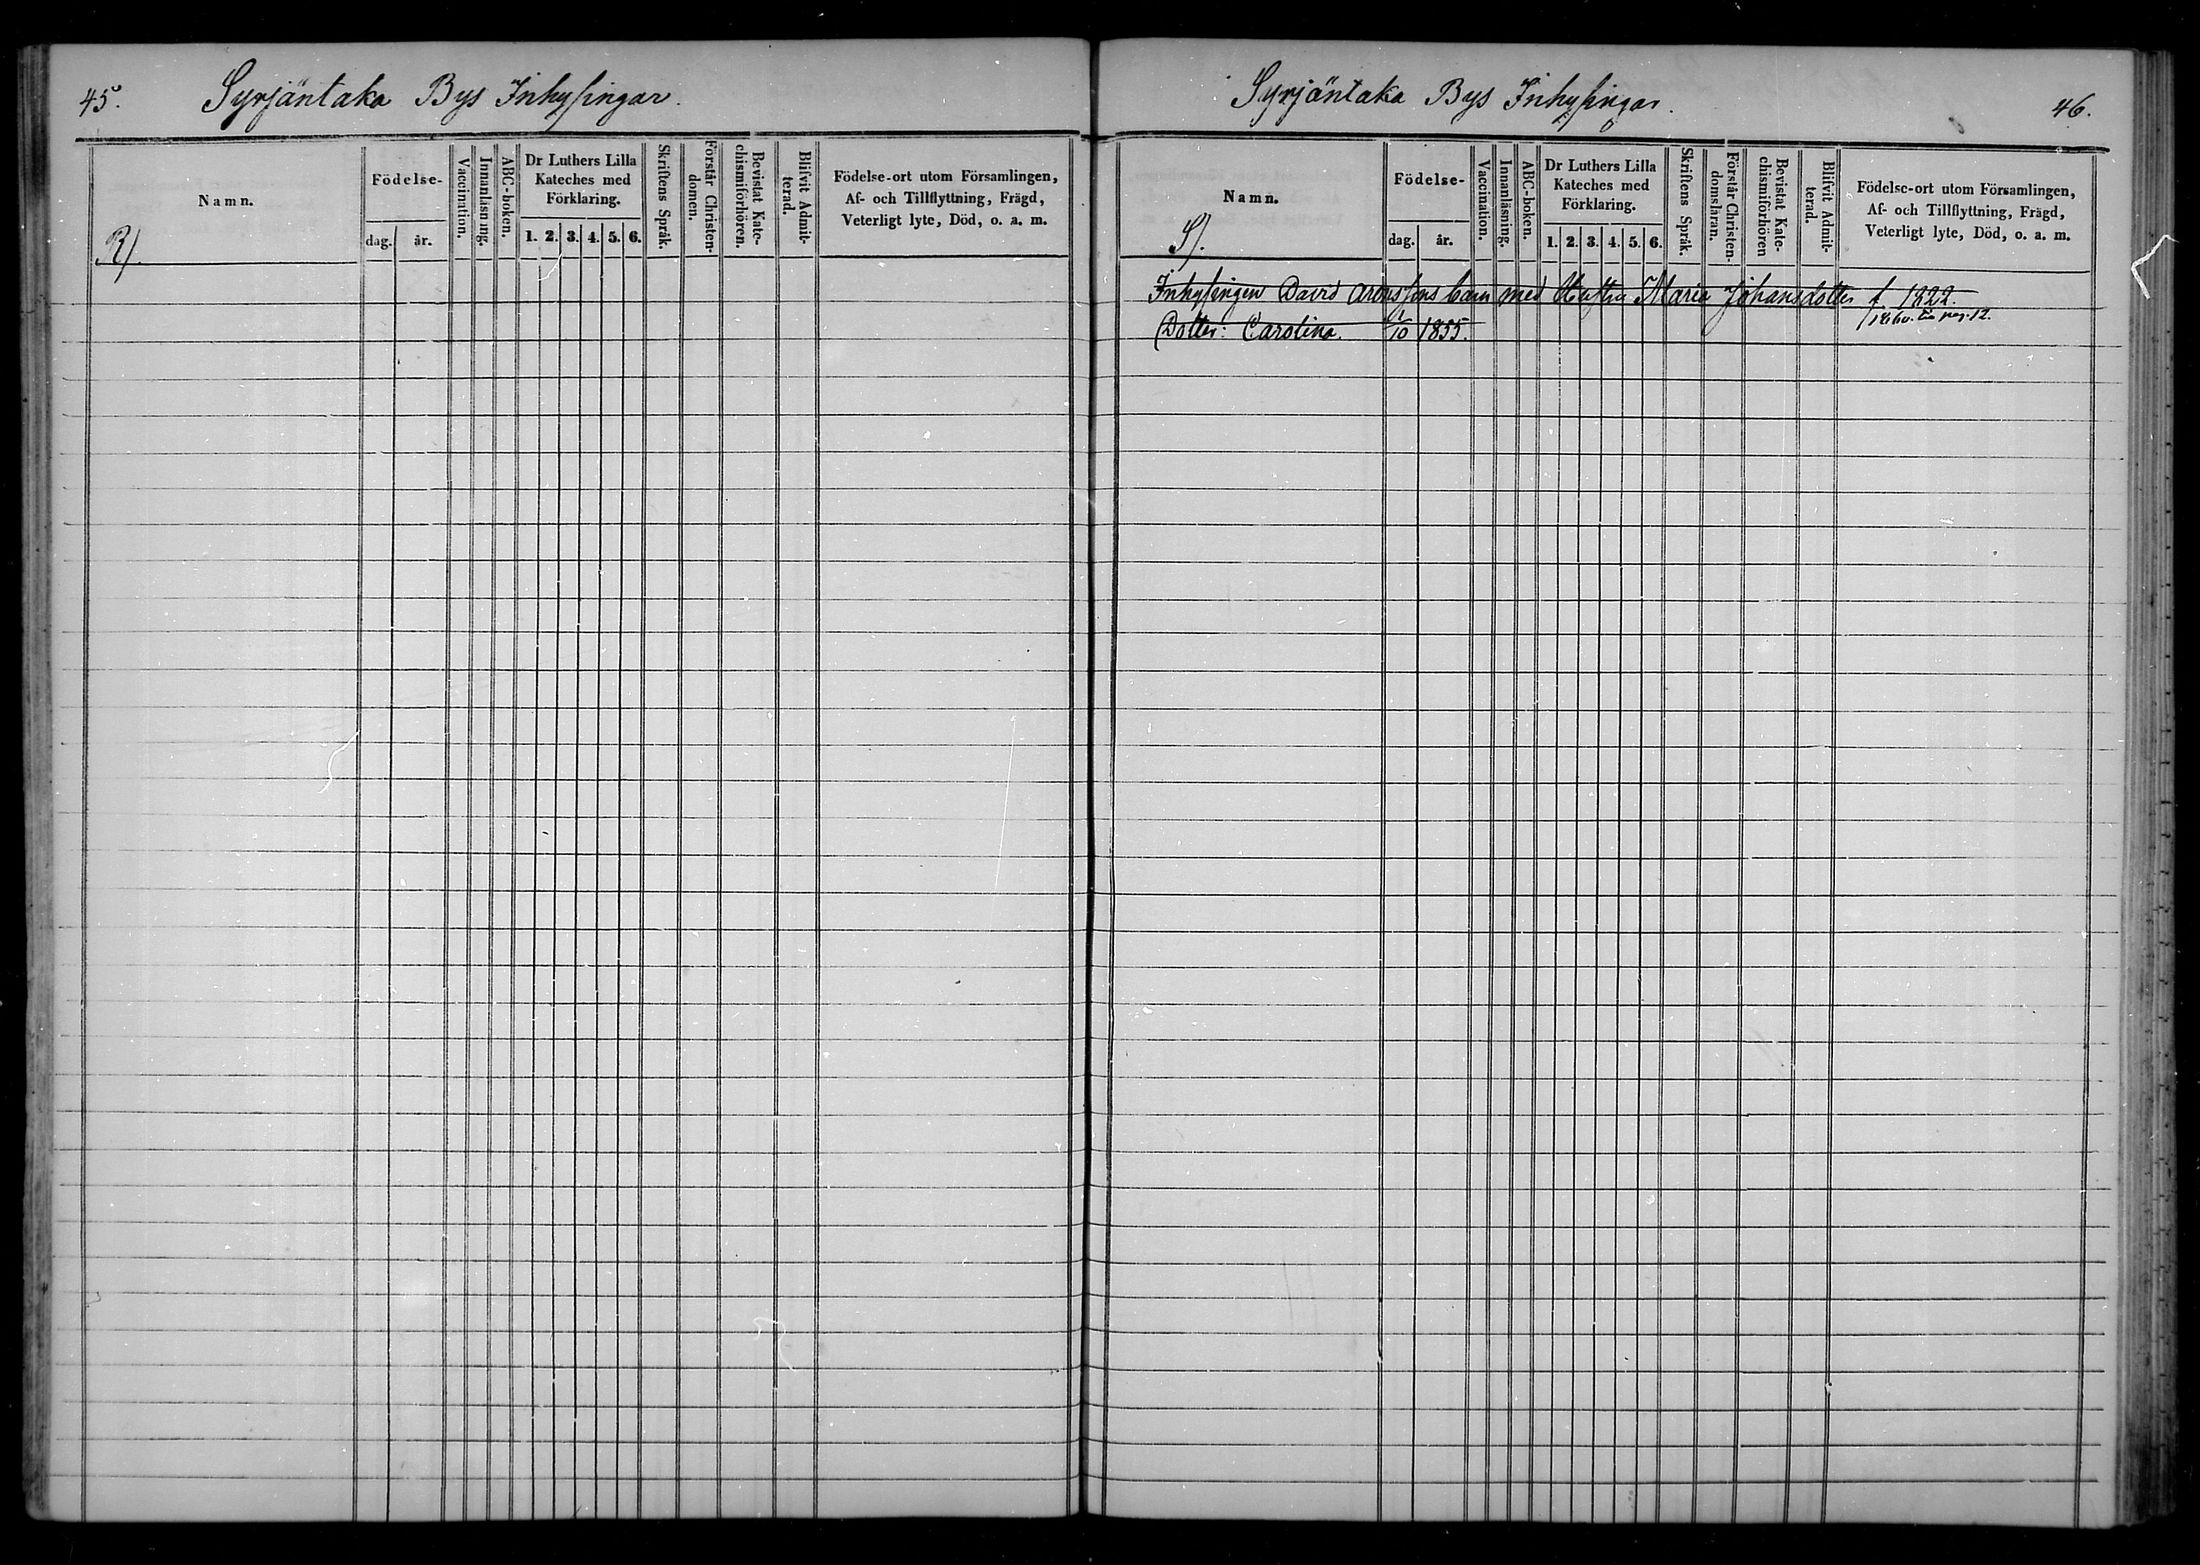 45. Syrjäntaka Bys Inhysingar.
Namn.
Födelse-
dag. år.
Vaccination.
Innanläsning.
ABC-boken.
Dr Luthers Lilla
Kateches med
Förklaring.
1. 2. 3. 4. 5. 6.
Skriftens Språk.
Förstår Christen-
domen.
Bevistat Kate-
chismiförhören.
Blifvit Admit-
terad.
Födelse-ort utom Församlingen,
Af- och Tillflyttning, Frägd,
Veterligt lyte, Död, o. a. m.
R).
Syrjäntaka Bys Inhysingar. 46.
Namn.
Födelse-
dag. år.
Vaccination.
Innanläsning.
ABC-boken.
Dr Luthers Lilla
Kateches med
Förklaring.
1. 2. 3. 4. 5. 6.
Skriftens Språk.
Förstår Christen-
domsläran.
Bevistat Kate-
chismiförhören
Blifvit Admit-
terad.
Födelse-ort utom Församlingen,
Af- och Tillflyttning, Frägd,
Veterligt lyte, Död, o. a. m.
S).
Inhysingen David Aronssons barn med Hustru Maria Johansdotter f. 1822.
Dotter: Carolina. 1/10 1855. 1860. pag. 12.